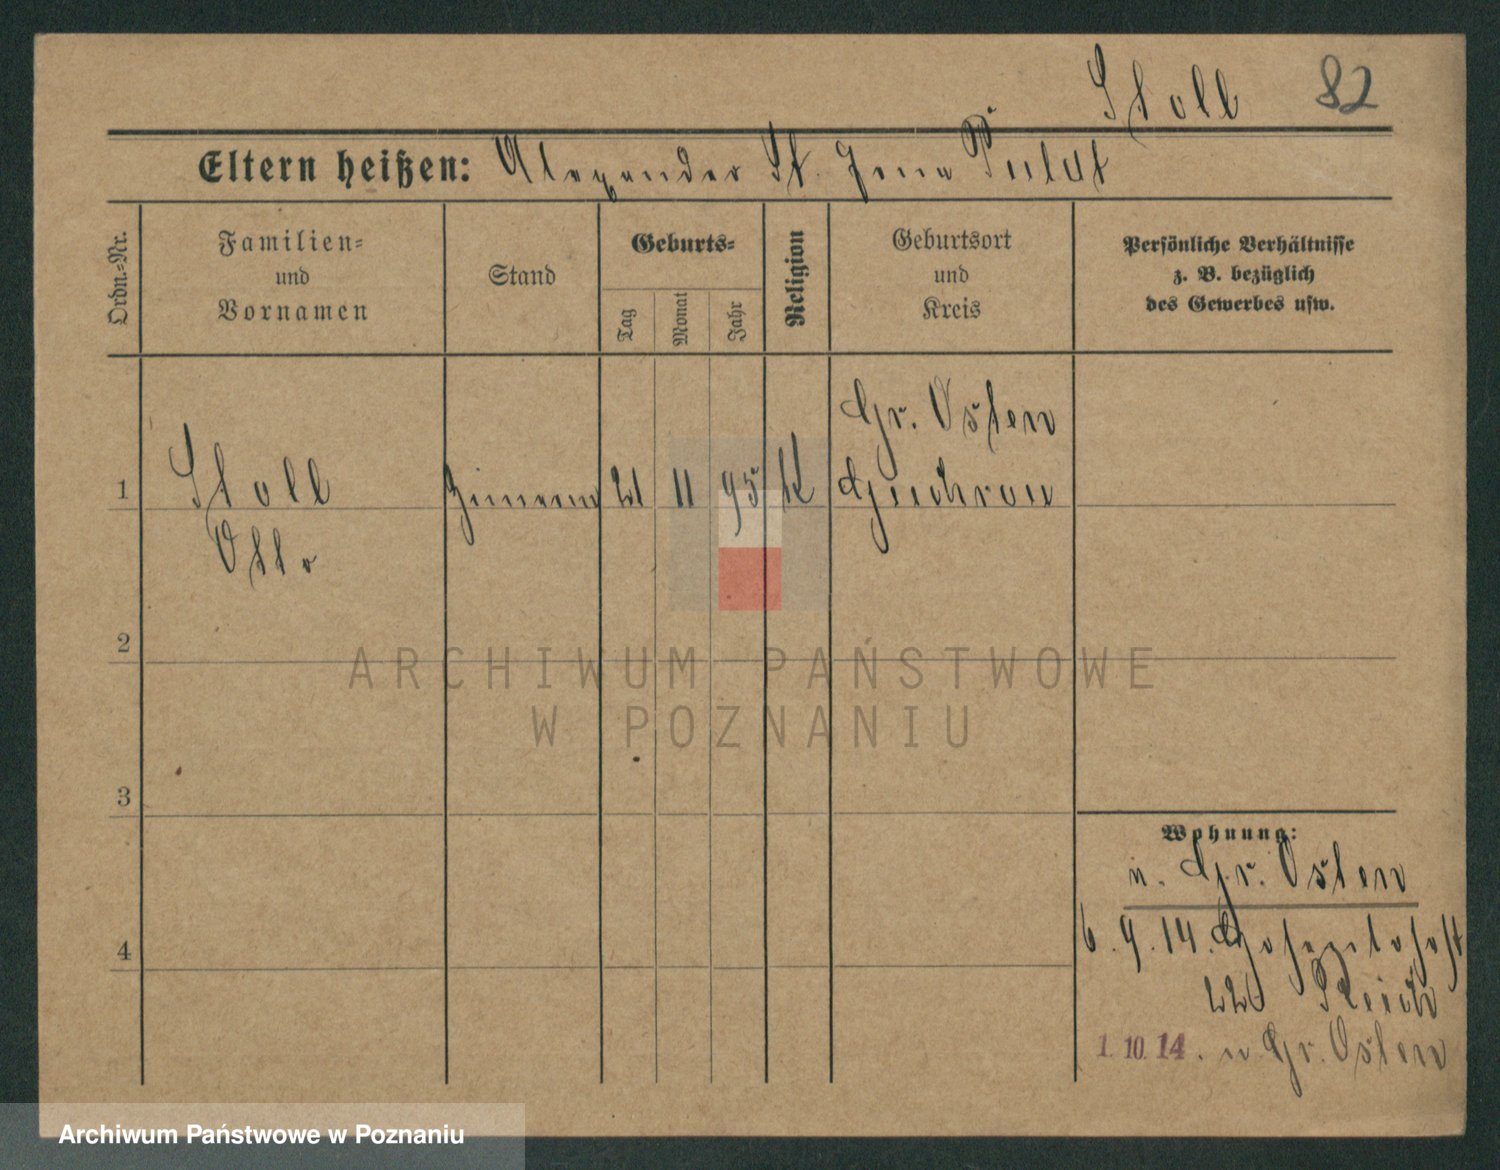 Stoll 82
Eltern heißen: Alexander St.
Ordn.=Nr.
Familien=
und
Vornamen
Stand
Geburts=
Tag
Monat
Jahr
Religion
Geburtsort
und
Kreis
Persönliche Verhältnisse
z. B. bezüglich
des Gewerbes usw.
Gr. Osten
1 Stoll 11 95 K Guhrau
Otto
2
3
4
Wohnung:
n. Gr. Osten
6. 9. 14.
Reich
1. 10. 14. n. Gr. Osten
ARCHIWUM PAŃSTWOWE
W POZNANIU
Archiwum Państwowe w Poznaniu